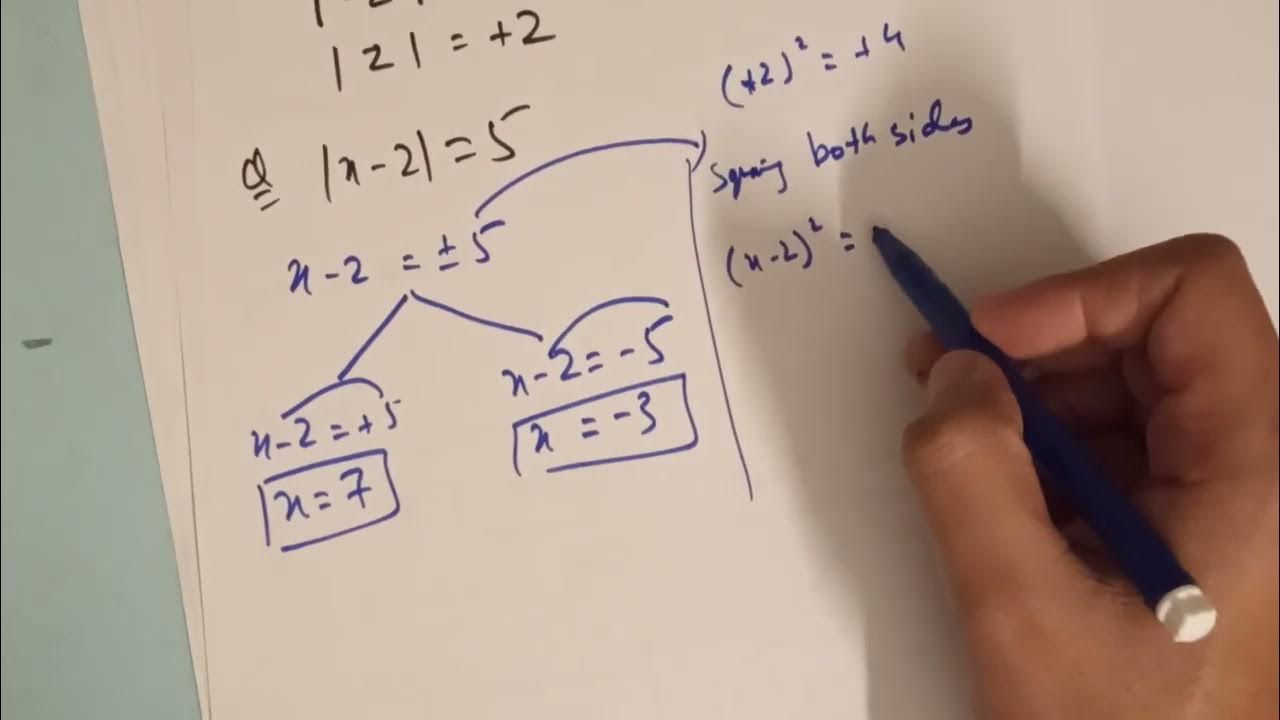 |2| = +2
Q |x-2| = 5
x-2 = ±5
x-2 = +5
x = 7
x-2 = -5
x = -3
(+2)² = +4
both sides
(x-2)² =